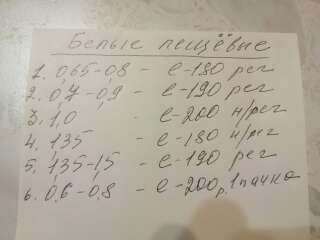 Белые пещёвые
1. 0,65-0,8 - е-180 рег
2. 0,7-0,9 - е-190 рег
3. 1,0 - е-200 н/рег
4. 1,35 - е-180 н/рег
5. 1,35-1,5 - е-190 рег
6. 0,6-0,8 - е-200р, 1пачно